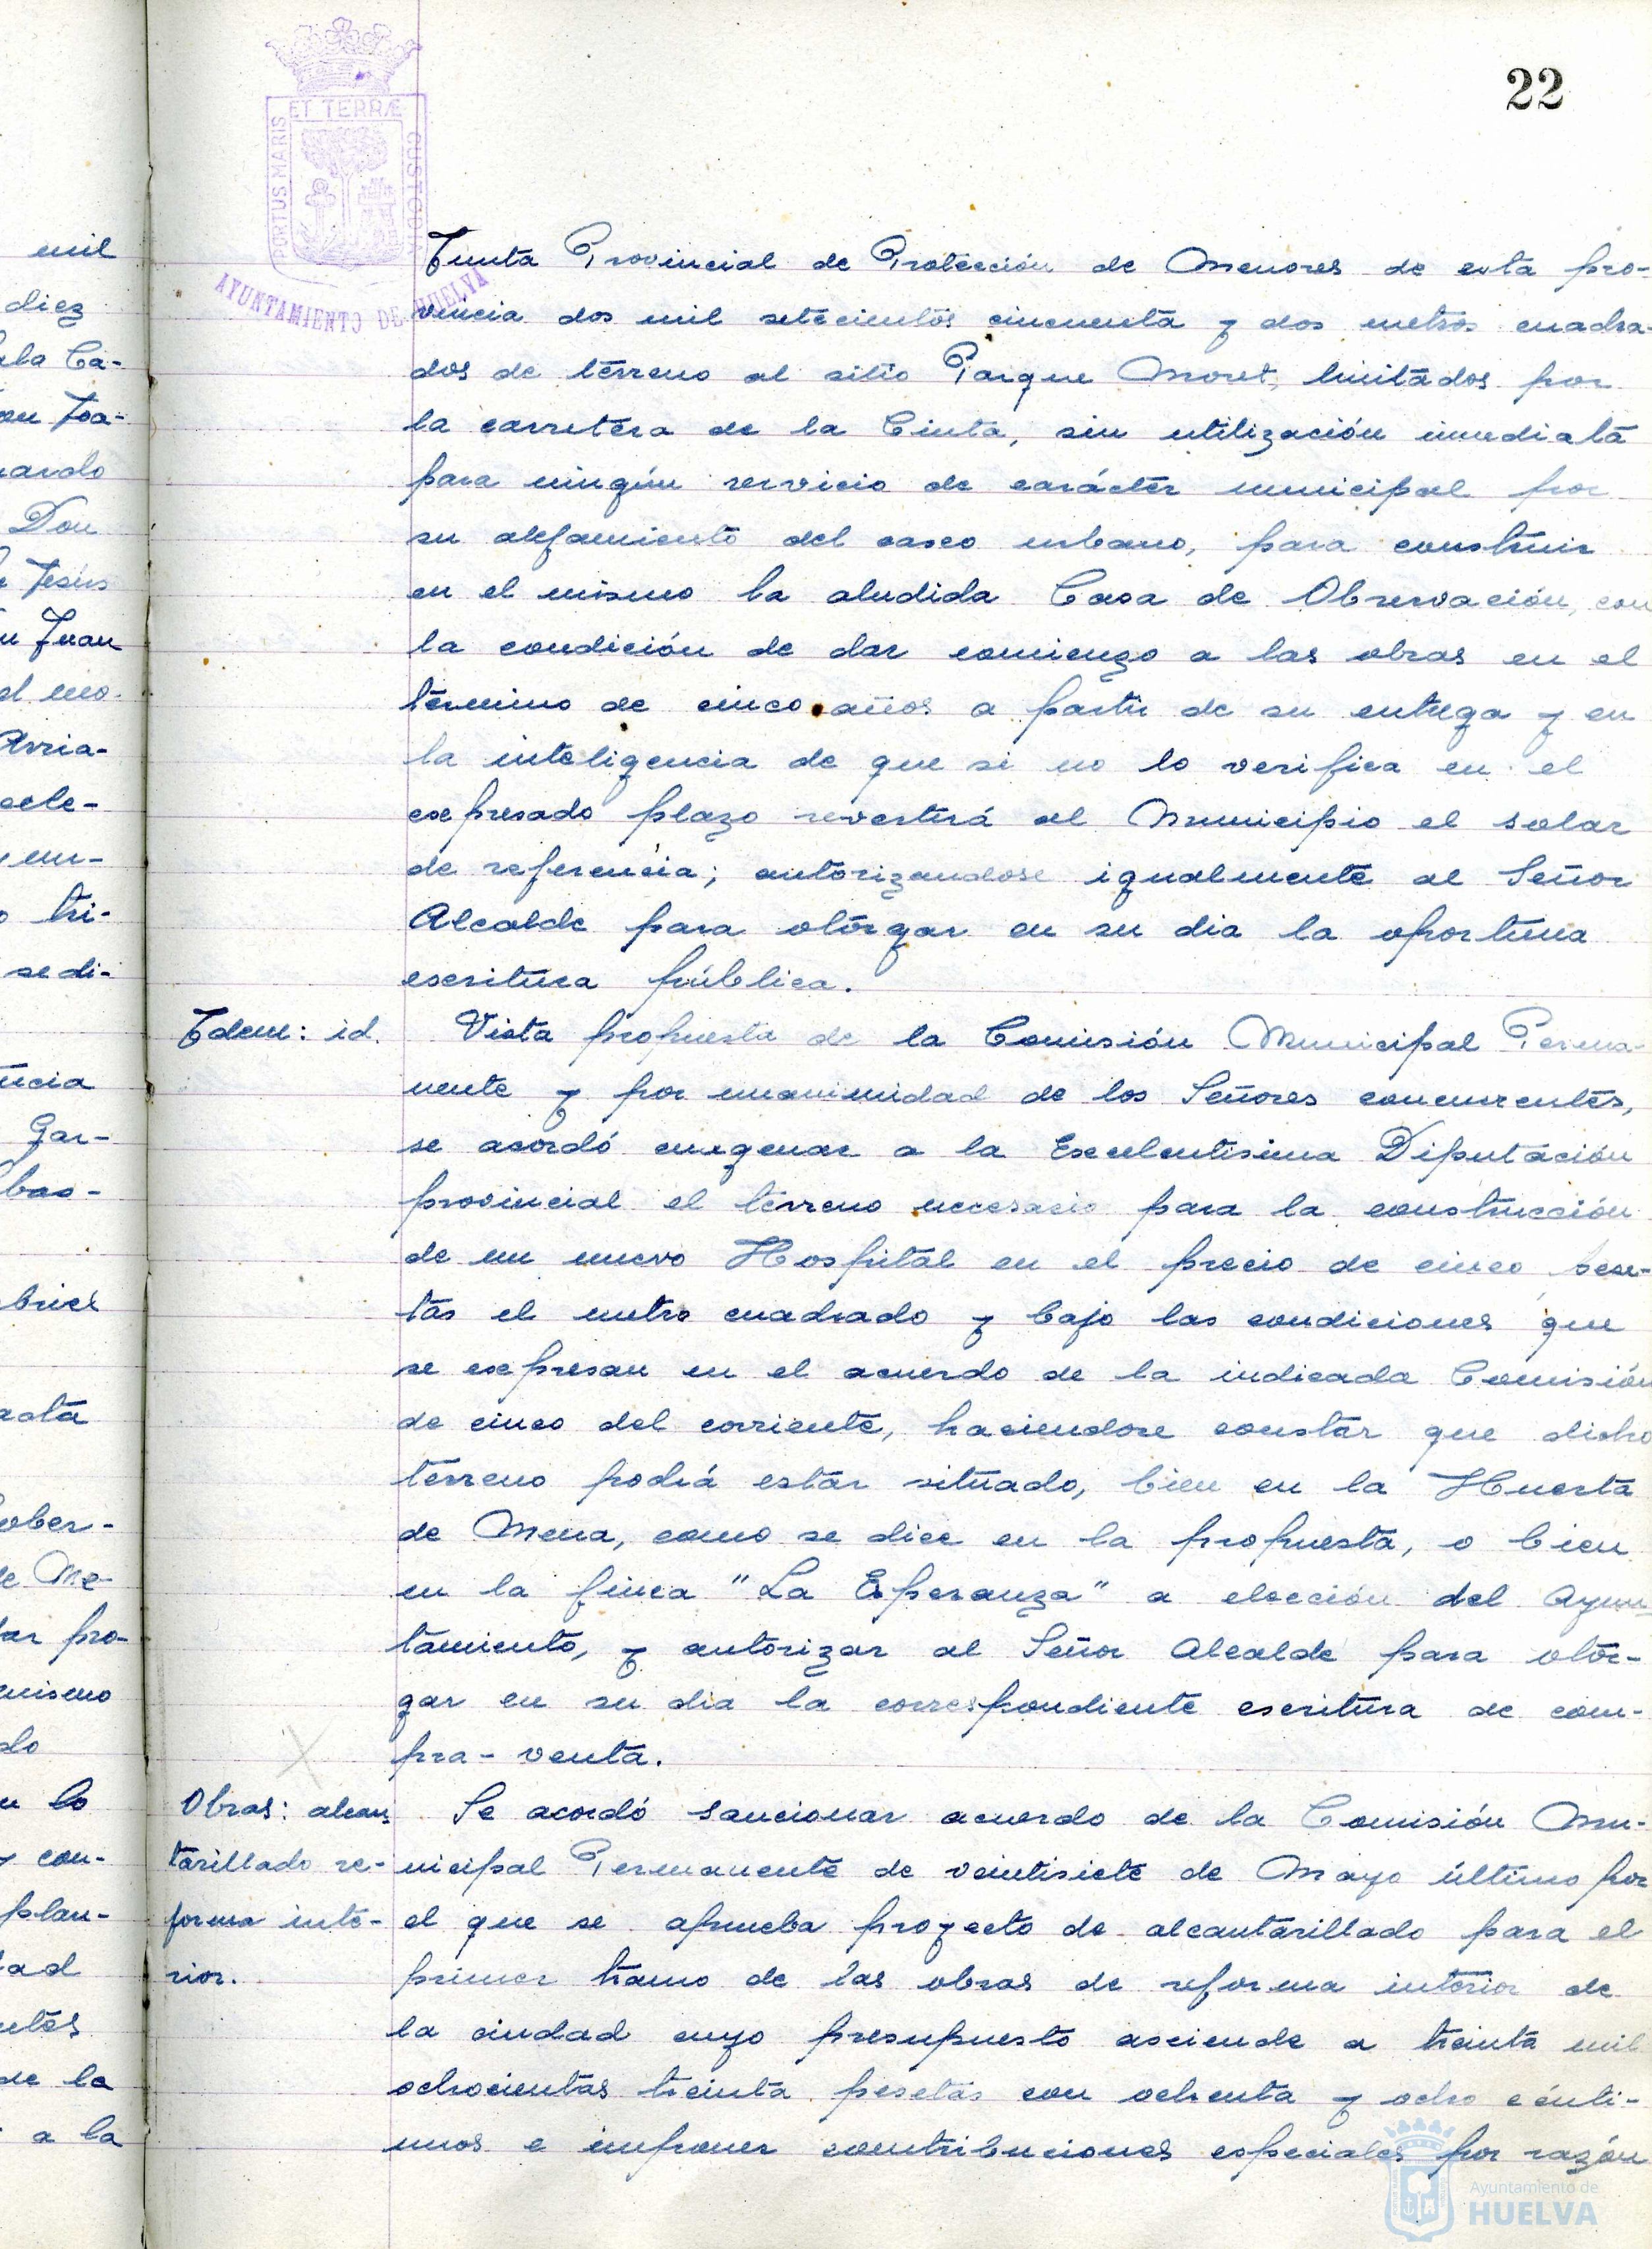 22
PORTUS MARIS
ET TERRÆ
CUSTODIA
AYUNTAMIENTO DE HUELVA
Junta Provincial de Protección de Menores de esta pro-
vincia dos mil setecientos cincuenta y dos metros cuadra-
dos de terreno al sitio Parque Moret, limitados por
la carretera de la Cinta, sin utilización inmediata
para ningún servicio de carácter municipal por
su alejamiento del casco urbano, para construir
en el mismo la aludida Casa de Observación, con
la condición de dar comienzo a las obras en el
término de cinco años a partir de su entrega y en
la inteligencia de que si no lo verifica en el
expresado plazo revertirá al Municipio el solar
de referencia; autorizandose igualmente al Señor
Alcalde para otórgar en su dia la oportuna
escritura pública.
Idem: id.
Vista propuesta de la Comisión Municipal Perma-
nente y por unanimidad de los Señores concurrentes,
se acordó enegenar a la Excelentisima Diputación
provincial el terreno necesario para la construcción
de un nuevo Hospital en el precio de cinco pese-
tas el metro cuadrado y bajo las condiciones que
se expresan en el acuerdo de la indicada Comisión
de cinco del corriente, haciendose constar que dicho
terreno podrá estar situado, bien en la Huerta
de Mena, como se dice en la propuesta, o bien
en la finca "La Esperanza" a elección del Ayun-
tamiento, y autorizar al Señor Alcalde para otor-
gar en su dia la correspondiente escritura de com-
pra-venta.
Obras: alcan-
tarillado re-
forma inte-
rior.
Se acordó sancionar acuerdo de la Comisión Mu-
nicipal Permanente de veintisiete de Mayo último por
el que se aprueba proyecto de alcantarillado para el
primer tramo de las obras de reforma interior de
la ciudad cuyo presupuesto asciende a treinta mil
ochocientas treinta pesetas con ochenta y ocho cénti-
mos e imponer contribuciones especiales por razón
mil
diez
Ca-
Joa-
Don
Jesús
Juan
Arria-
cele-
tri-
se di-
Gar-
acta
Me-
pro-
mismo
lo
y con-
plan-
de la
a la
Ayuntamiento de
HUELVA